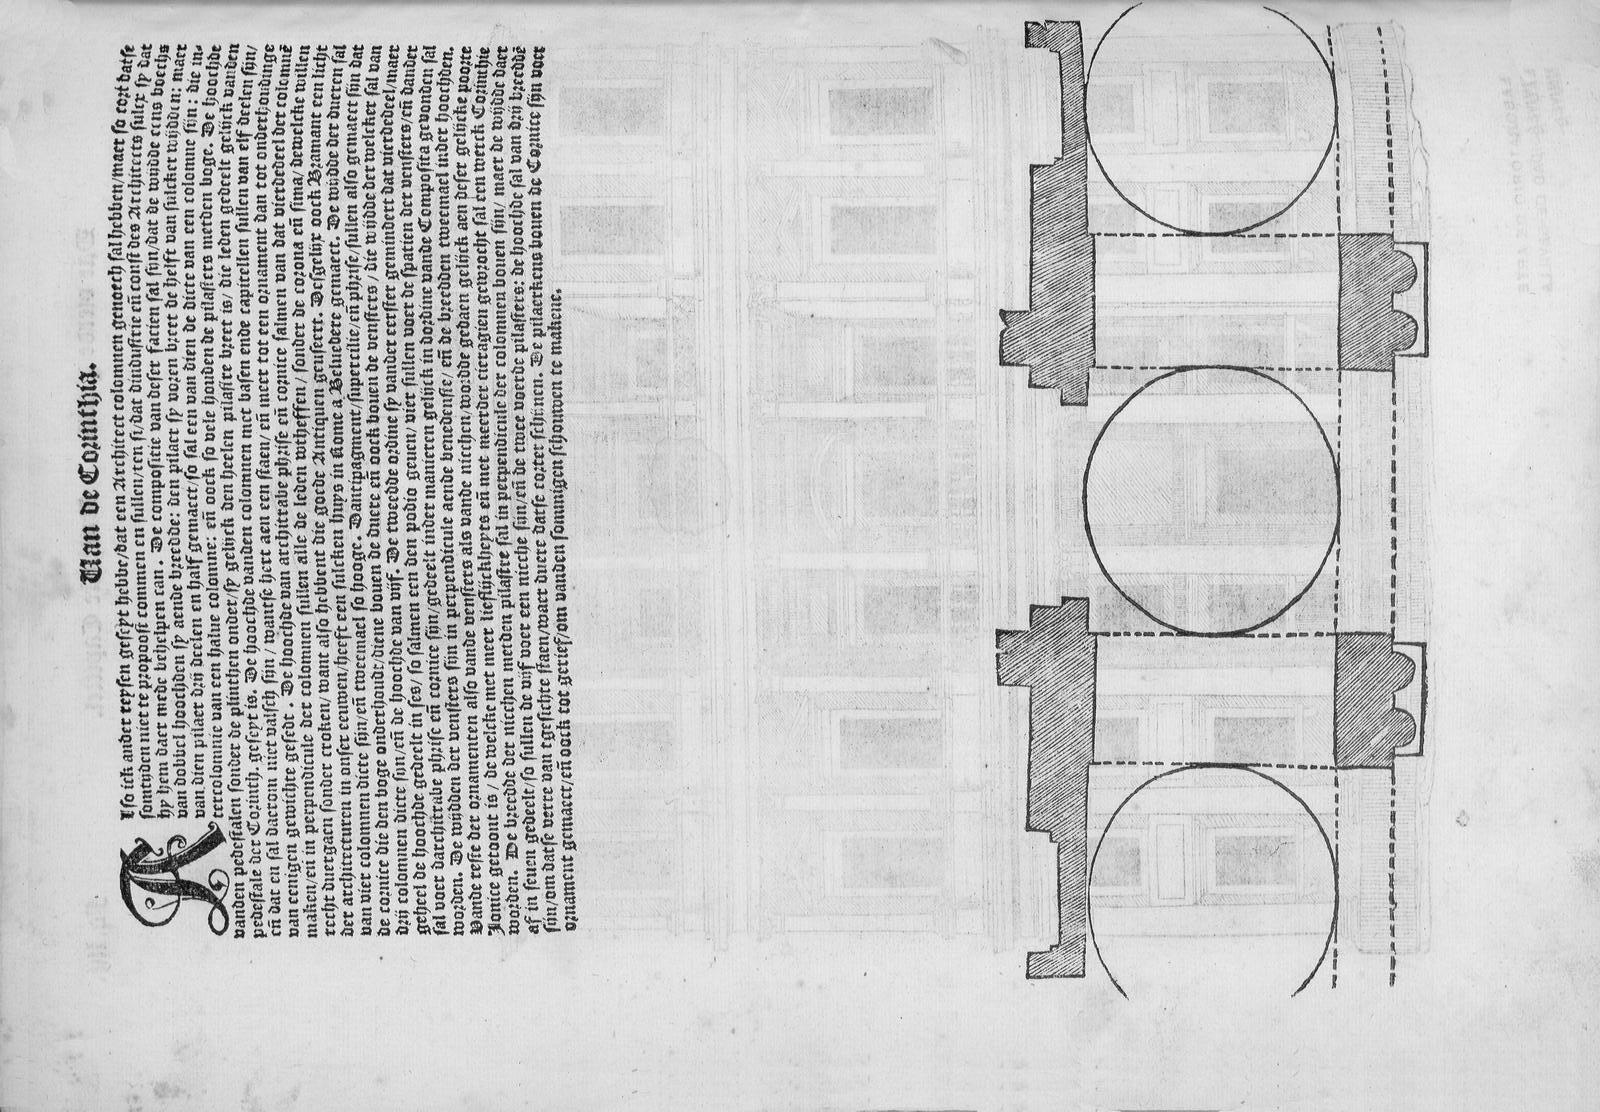 Uan de Corinthia.
Also ick ander reysen geseyt hebbe/dat een Architect colomnen genoech sal hebben/maer so cort datse
somtijden niet te propooste commen en sullen/ten si/dat dindustrie eñ const des Architects sulcx sy dat
hy hem daer mede behelpen can. De compositie van deser facien sal sijn/dat de wijdde eens voechs
van dobbel hoochden sy aende breedde: den pilaer sy voren breet de helft van sulcker wijdden: maer
van dien pilaer drij deelen en half gemaect/so sal een van dien de dicte van een colomne sijn: die in-
tercolomnie van een halue colomne: eñ oock so vele houden de pilasters metden boge. De hoochde
vanden pedestalen sonder de plinthen onder/sy gelijck den heelen pilastre breet is/ die leden gedeelt gelijck vanden
pedestale der Corinth. geseyt is. De hoochde vanden colomnen met basen ende capitellen sullen van elf deelen sijn/
eñ dat en sal daerom niet valsch sijn / wantse hert aen een staen/ eñ meer tot een ornament dan tot onderhoudinge
van eenigen gewichte gesedt . De hoochde van architrabe phrise eñ cornice salmen van dat vierdedeel der colomnē
maken/en in perpendicule der colomnen sullen alle de leden wtheffen/ sonder de corona eñ sima/ dewelcke willen
recht duergaen sonder croken/ want also hebbent die goede Antiquen geuseert. Desgelijx oock Bramant een licht
der architecturen in onser eeuwen/heeft een sulcken huys in Rome a Beluedere gemaect. De wijdde der dueren sal
van vier colomnen dicte sijn/eñ tweemael so hooge. Dantipagment/supercilie/eñ phrise/sullen also gemaect sijn dat
de cornice die den boge onderhoudt/diene bouen de duere eñ oock bouen de vensters / die wijdde der welcker sal van
drij colomnen dicte sijn/eñ de hoochde van vijf. De tweedde ordine sy vander eerster gemindert dat vierdedeel/maer
geheel de hoochde gedeelt in ses/ so salmen een den podio geuen/ vier sullen voer de spatien der vensters/eñ dander
sal voer darchitrabe phrise eñ cornice sijn/gedeelt inder manieren gelijck in dordine vande Composita gevonden sal
worden. De wijdden der vensters sijn in perpendicule aende benedenste/ eñ de breedden tweemael inder hoochden.
Vande reste der ornamenten also vande vensters als vande nicchen/wordde gedaen gelijck aen deser gelijcke poorte
Jonice getoont is / de welcke met meer liefsijckheyts eñ met meerder cieragien gewrocht sal een werck Corinthie
worden. De breedde der nicchen metden pilastre sal in perpendicule der colomnen bouen sijn/ maer de wijdde daer
af in seuen gedeelt/so sullen de vijf voer een niche sijn/eñ de twee voerde pilasters: de hoochde sal van drij breeddē
sijn/om datse verre van tgesichte staen/waer duere datse corter schinen. De pilaerkens bouen de Cornice sijn voer
ornament gemaect/eñ oock tot gerief/om vanden sommigen schouwen te makene.